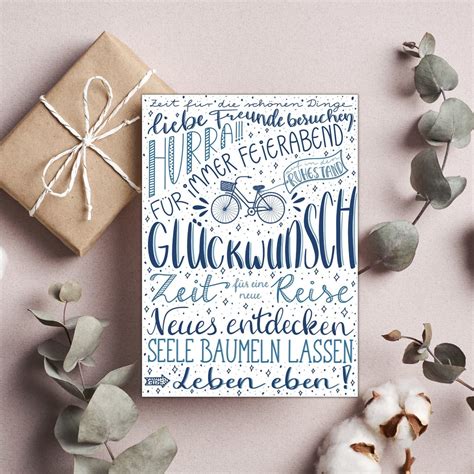 Zeit für die schönen Dinge
liebe Freunde besuchen
HURRA!!!
FÜR IMMER FEIERABEND
RUHESTAND!
GLÜCKWUNSCH
Zeit für eine neue Reise
Neues entdecken
SEELE BAUMELN LASSEN
Leben eben!